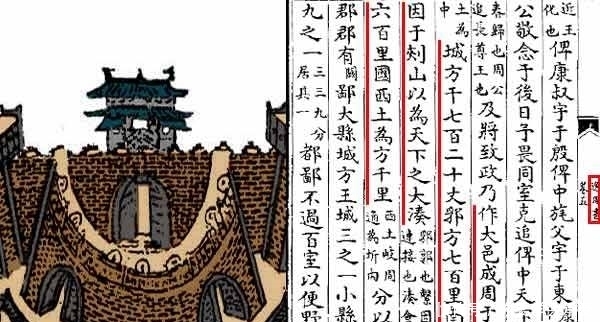 近王
化也
俾康叔宇于殷俾中旄父宇于東
康
中
公敬念于後日予畏同室克追俾中天
秦歸也周公
追長尊王也
及將致政乃作大邑成周于
土為
中
城方千七百二十丈郛方七百里南
因于郟山以為天下之大湊
郛郭也繫因
連接也湊會
六百里國西土為方千里
西土岐周
通為圻内
分以
郡郡有
闕
鄙大縣城方王城三之一小縣
九之一
三三九分
居其一
都鄙不過百室以便野
卷五